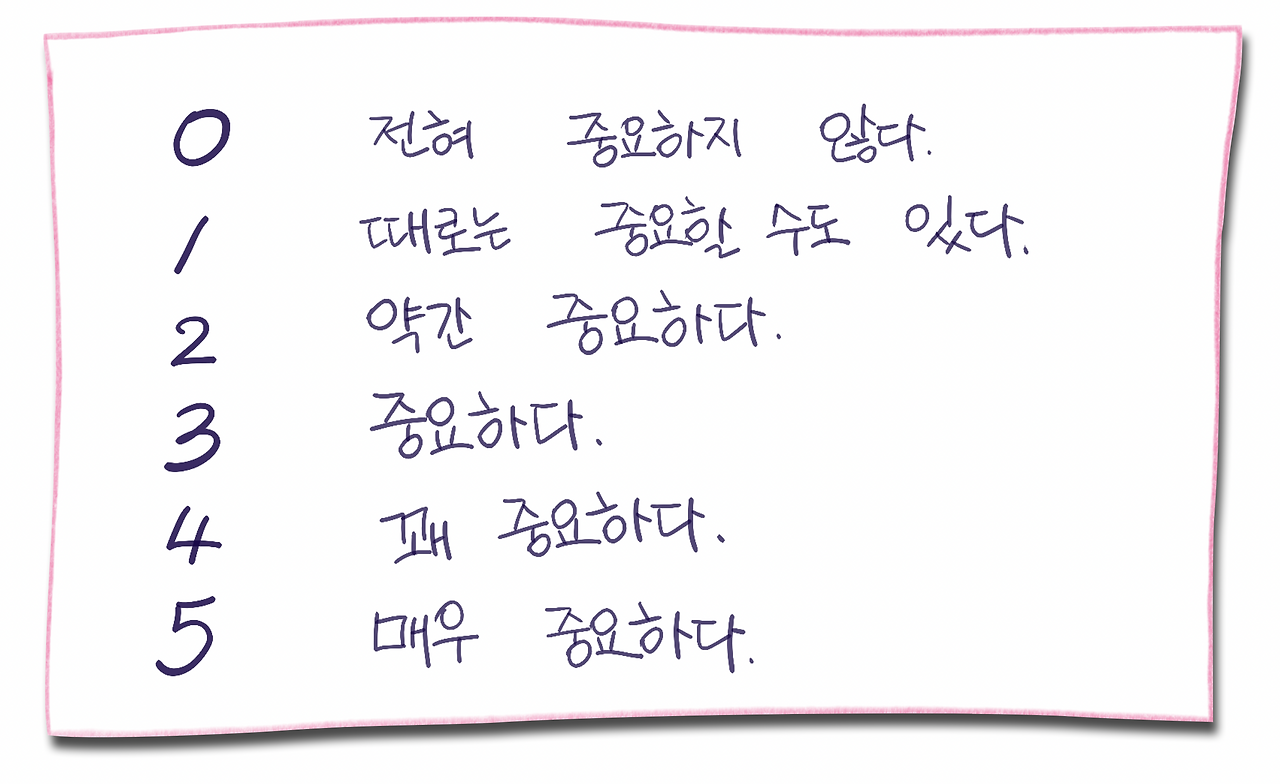 0 전혀 중요하지 않다.
1 때로는 중요할 수도 있다.
2 약간 중요하다.
3 중요하다.
4 꽤 중요하다.
5 매우 중요하다.